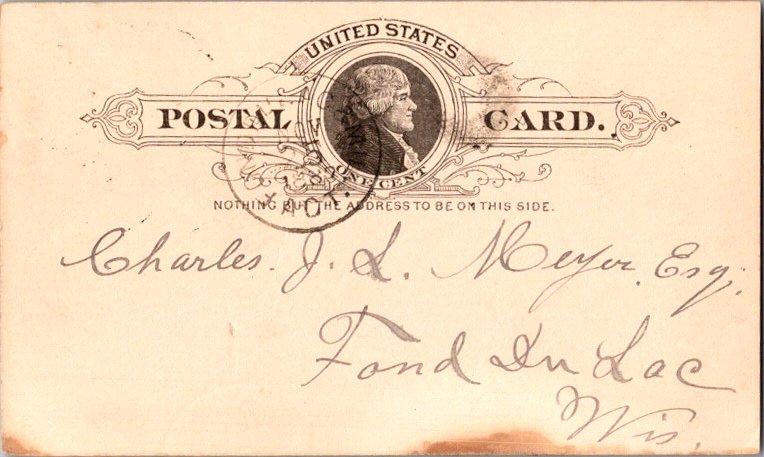 UNITED STATES
POSTAL CARD.
ONE CENT
NOTHING BUT THE ADDRESS TO BE ON THIS SIDE.
Charles. J. L. Meyer, Esq.
Fond Du Lac
Wis.